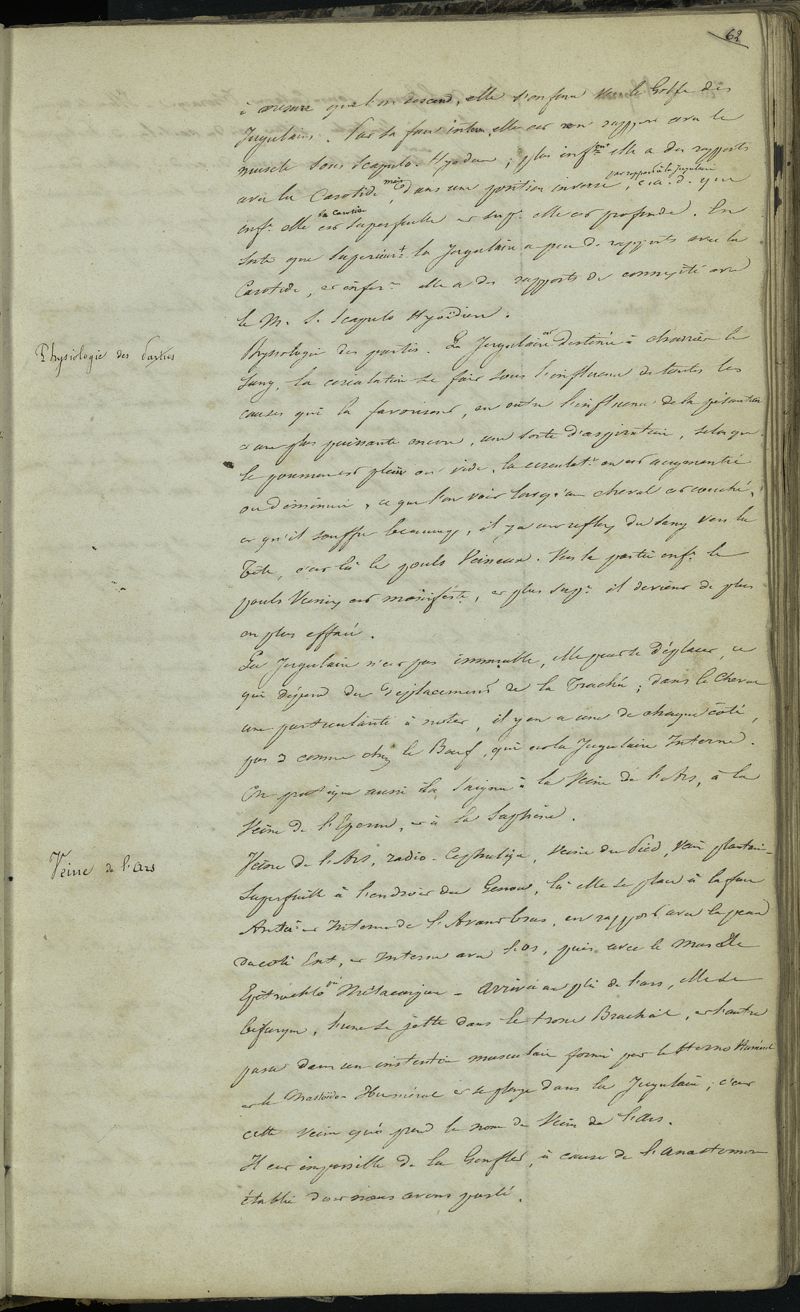 62
à mesure que l'on descend, elle s'enfonce vers le Golfe des
Jugulaires. Par sa face interne, elle est en rapport avec le
muscle sous Scapulo-Hyoïdien, plus infmt elle a des rapports
avec la Carotide, mais dans une position inverse par rapport à la jugulaire, c.à.d. que
inft elle est superficielle et supt elle est profonde. En
la carotide
sorte que supérieurt la Jugulaire a peu de rapports avec la
Carotide, et inférmt elle a des rapports de connexité avec
le M. S. Scapulo Hyoïdien.
Physiologie des Parties
Physiologie des parties. La Jugulaire est destinée à charrier le
sang, la circulation se fait sous l'influence de toutes les
causes qui la favorisent, en outre l'influence de la pésanteur
et une plus puissante encore, une sorte d'aspiration, selon que
le poumon est plein ou vide, la circulatn en est augmentée
ou diminuée, ce que l'on voit lorsqu'un cheval est couché,
et qu'il souffre beaucoup, il y a un reflux du sang vers la
Tête, c'est là le pouls Veineux. Vers la partie infre le
pouls Veineux est manifeste, et plus supt il devient de plus
en plus effacé.
La Jugulaire n'est pas immuable, elle peut se déplacer, ce
qui dépend du déplacement de la Trachée; dans le Cheval
une particularité à noter, il y en a une de chaque côté,
pas 2 comme chez le Bœuf, qui est la Jugulaire Interne.
On pratique aussi la Saignée à la Veine de l'Ars, à la
Veine de l'Eperon, et à la Saphène.
Veine de l'Ars
Veine de l'Ars, radio-Cephalique, Veine du Pied,
Superficielle à l'endroit du Genou, là elle se place à la face
Antre et Interne de l'Avant bras, en rapport avec la peau
du côté Ext, et Interne avec l'os, puis avec le Muscle
Epitrochlo Métacarpien - arrivée au pli de l'ars, elle se
bifurque, l'une se jette dans le tronc Brachial, et l'autre
passe dans un interstice musculaire formé par le Sterno Huméral
et le Mastoïdo Huméral et se plonge dans la Jugulaire, c'est
cette veine qui prend le nom de Veine de l'Ars.
Il est impossible de la Gonfler, à cause de l'anastomose
établie dont nous avons parlé.